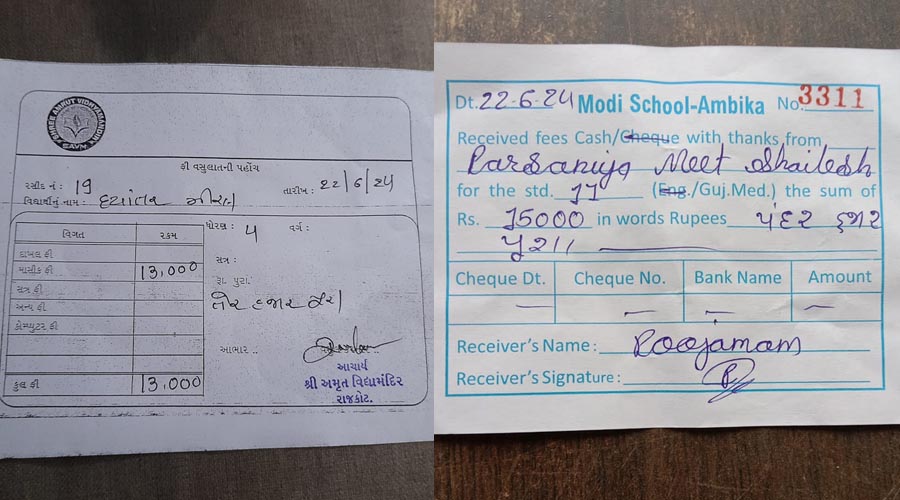 SHREE AMRUT VIDHYAMANDIR
SAVM
ફી વસુલાતની પહોંચ
રસીદ નં : 19
તારીખ : 22/6/24
વિદ્યાર્થીનું નામ :
ધોરણ : 5 વર્ગ :
વિગત રકમ
દાખલ ફી
માસીક ફી 13,000
સત્ર :
સત્ર ફી
રૂા. પુરા.
અન્ય ફી
તેર હજાર પુરા
કોમ્પ્યુટર ફી
આભાર ..
આચાર્ય
કુલ ફી 13,000
શ્રી અમૃત વિદ્યામંદિર
રાજકોટ.
Dt. 22-6-24 Modi School-Ambika No. 3311
Received fees Cash/Cheque with thanks from
Parsaniya Meet Shailesh
for the std. 11 (Eng./Guj.Med.) the sum of
Rs. 15000 in words Rupees પંદર હજાર
પુરા
Cheque Dt. Cheque No. Bank Name Amount
Receiver's Name : Poojamam
Receiver's Signature :